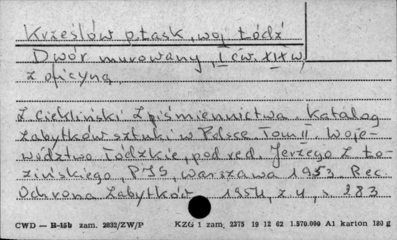 Krzeslów p.łask, woj Łódź
Dwór murowany, I ćw. XIX w,
z oficyną
Z. Ciekliński Z piśmiennictwa Katalog
zabytków sztuki w Polsce Tom II. Woje-
wództwo Łódzkie, pod red. Jerzego Z Ło-
zińskiego, PIS, Warszawa 1953 Rec.
Ochrona Zabytków 1954, z 4, s 283
CWD — B-15b zam. 2033/ZW/P KZG 1 zam. 2375 19 12 62 1.570.000 A1 karton 180 g